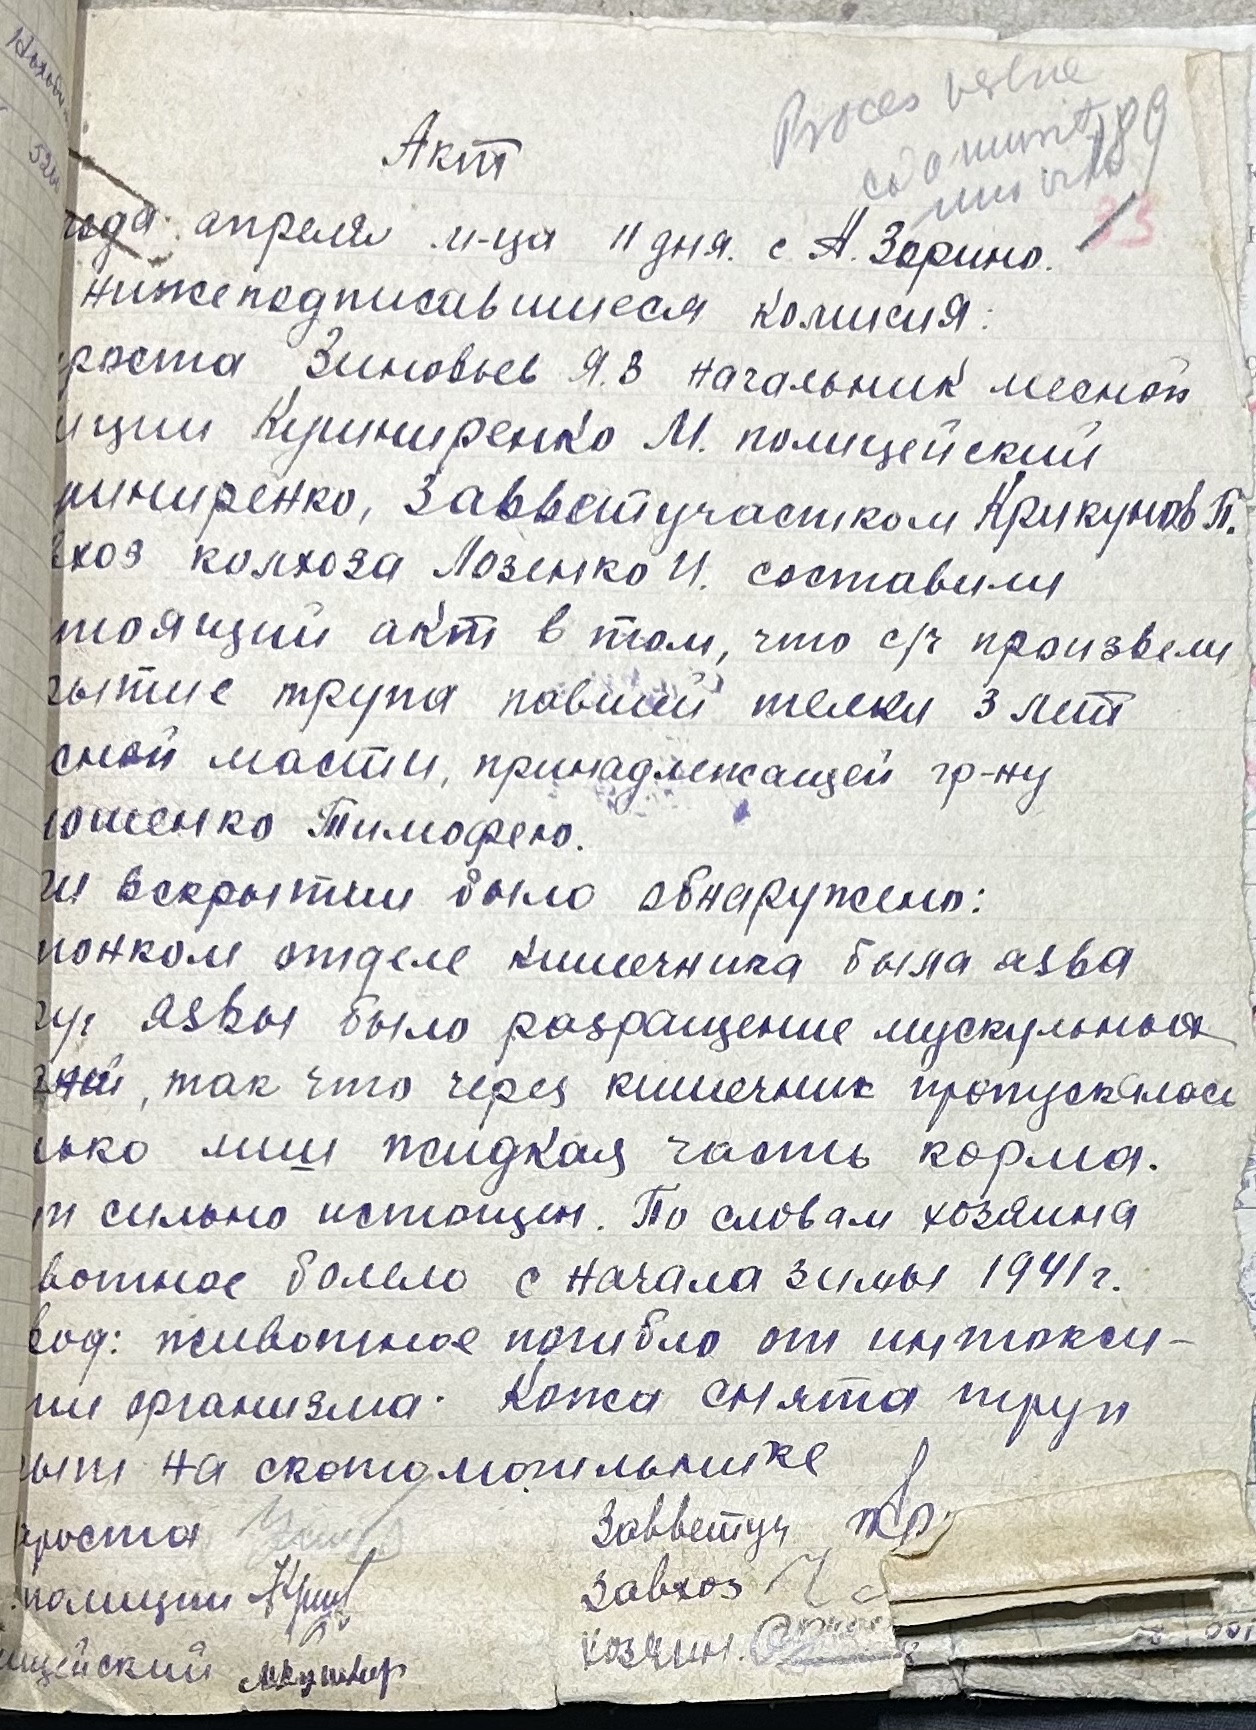 Proces verbal
189
33
Акт
года. апреля м-ца 11 дня. с. А. Зорино.
нижеподписавшиеся комисия:
роста Зиновьев Я.З начальник месной
иции Кушниренко М. полицейский
шниренко, Завветучастком Крикунов П.
вхоз колхоза Лозенко И. составили
тоящий акт в том, что с/ч произвели
рытие трупа павшей телки 3 лет
сной масти, принадлежащей гр-ну
юшенко Тимофею.
ри вскрытии было обнаружено:
тонком отделе кишечника была язва
язвы было розращение мускульных
ней, так что через кишечник пропускалось
лько лиш жидкая часть корма.
сильно истощен. По словам хозяина
вотное болело с начала зимы 1941 г.
вод: животное погибло от интокси-
ции организма. Кожа снята труп
рыт на скотомогильнике
роста
Завветуч Кр
полиции Куш
Завхоз
ицейский Мкушнир
хозяин.